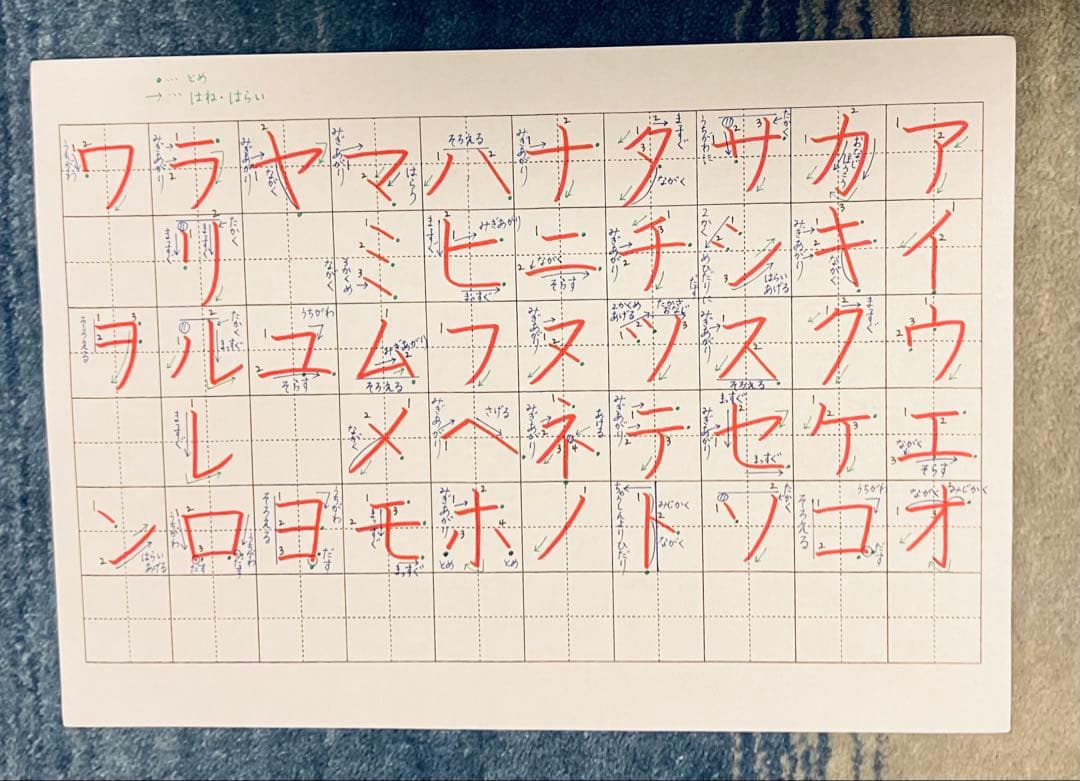 • … とめ
→ … はね・はらい
ア
イ
ウ
エ
ながく
そらす
オ
ながく
みじかく
カ
おなじ
ほうこう
キ
みぎあがり
ながく
ク
まっすぐ
ケ
コ
うちがわ
そろえる
だす
サ
うちがわに
たかく
シ
2かくめひだりに
はらい
あげる
ス
みぎあがり
そろえる
セ
まっすぐ
みぎあがり
まっすぐ
ソ
たかく
タ
まっすぐ
ながく
チ
みぎあがり
だす
ツ
2かくめ
あげる
テ
みぎあがり
ト
ちゅうしんよりひだり
みじかく
ながく
ナ
みぎあがり
ニ
ながく
そらす
ヌ
みぎあがり
ネ
みぎあがり
あける
ノ
ハ
そろえる
ヒ
まっすぐ
みぎあがり
まっすぐ
フ
ヘ
みぎあがり
さげる
ホ
みぎあがり
とめ
とめ
マ
みぎあがり
はらう
ミ
3かくめ
ながく
ム
みぎあがり
そろえる
メ
ながく
モ
まっすぐ
まっすぐ
ヤ
みぎあがり
ながく
ユ
うちがわ
そらす
ヨ
そろえる
うちがわ
だす
ラ
みぎあがり
リ
たかく
まっすぐ
まっすぐ
ル
たかく
まっすぐ
レ
まっすぐ
ロ
うちがわ
うちがわ
だす
だす
ワ
うちがわ
ヲ
そろえる
ン
はらい
あげる